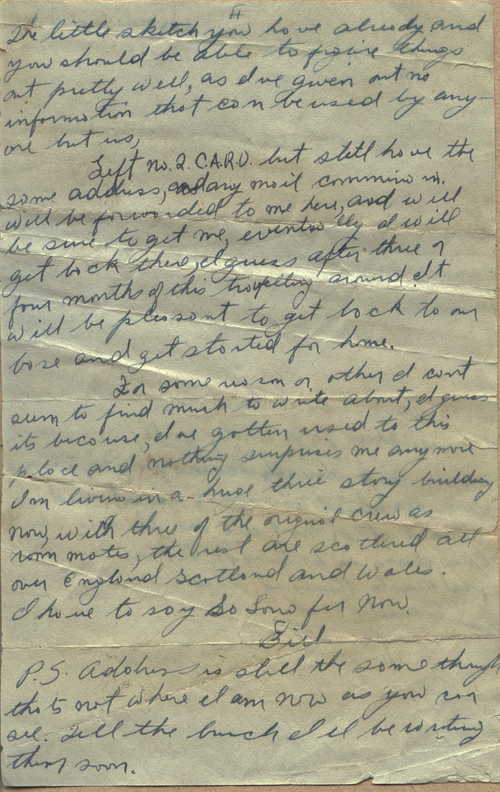 II
The little sketch you have already and
you should be able to figure things
out pretty well, as I've given out no
information that can be used by any-
one but us,
Left no. 2. C.A.R.D. but still have the
same address, and any mail coming in.
will be forwarded to me here, and will
be sure to get me, eventually I will
get back there, I guess after three or
four months of this traveling around. It
will be pleasant to get back to our
base and get started for home.
For some reason or other I cant
seem to find much to write about, I guess
its because, I've gotten used to this
place and nothing surprises me anymore
I'm living in a huge three story building
now, with three of the original crew as
room mates, the rest are scattered all
over England Scotland and Wales.
I have to say So Long for Now.
Bill
P.S. Address is still the same though
thats not where I am now as you can
see. Tell the bunch I'll be writing
them soon.